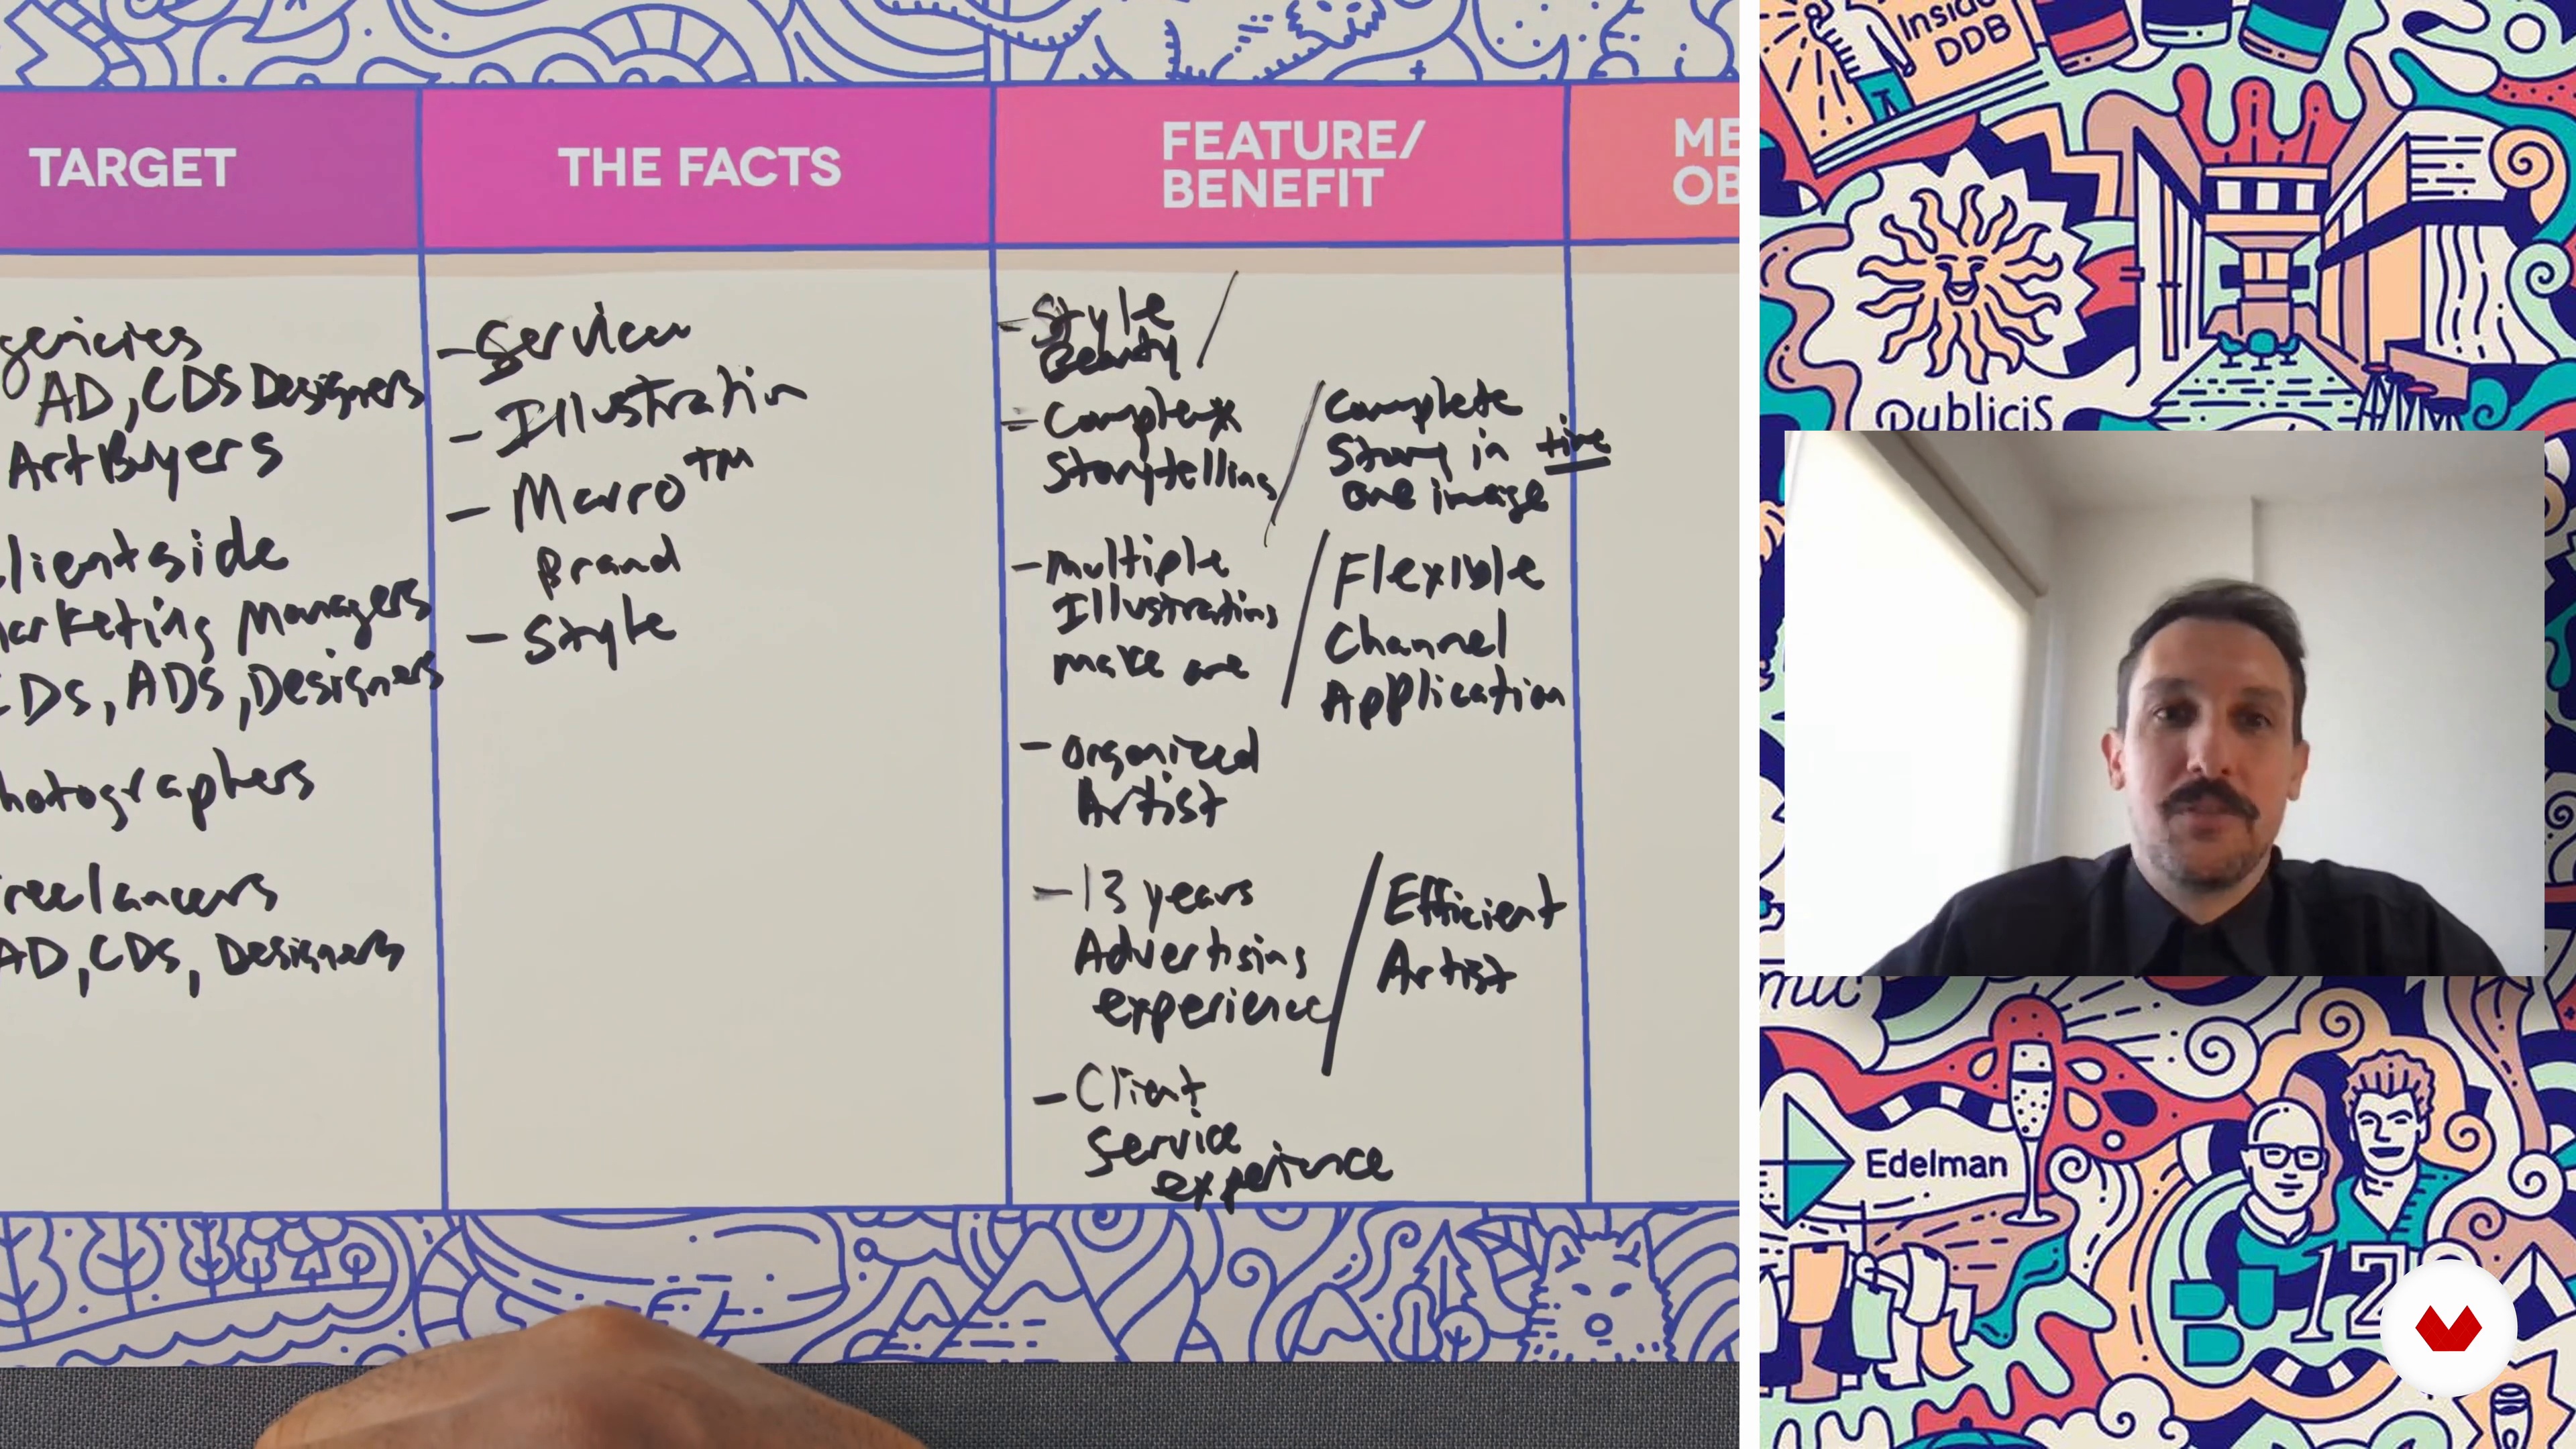 TARGET
THE FACTS
FEATURE/
BENEFIT
ME
OB
gencies
AD, CDS Designers
Art Buyers
lientside
arketing Managers
CDs, ADs, Designers
hotographers
reelancers
AD, CDs, Designers
- Service
- Illustration
- Marro™
Brand
- Style
- Style
Beauty /
- Complex
Storytelling /
Complete
Story in time
one image
- Multiple
Illustrations
make one /
Flexible
Channel
Application
- Organized
Artist
- 13 years
Advertising
experience /
Efficient
Artist
- Client
Service
experience
Inside
DDB
publicis
mic
Edelman